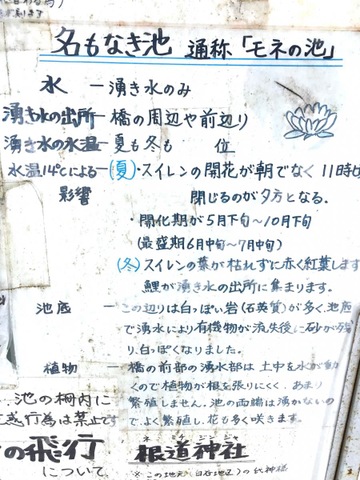 名もなき池 通称「モネの池」
水 ー湧き水のみ
湧き水の出所ー橋の周辺や前辺り
湧き水の水温ー夏も冬も 位
水温14℃によるー(夏)・スイレンの開花が朝でなく11時
影響 閉じるのが夕方となる.
・開化期が5月下旬〜10月下旬
(最盛期6月中旬〜7月中旬)
(冬)スイレンの葉が枯れずに赤く紅葉します
鯉が湧き水の出所に集まります.
池底 ーこの辺りは白っぽい岩(石英質)が多く、池底
で湧水により有機物が流失後に砂が残
り、白っぽくなりました.
植物 ー橋の前部の湧水部は土中を水が動
くので植物が根を張りにくく、あまり
繁殖しません.池の両端は湧かないの
で、よく繁殖し、花も多く咲きます.
池の柵内に
惑行為は禁止です
の飛行
について
ネミチジンジャ
根道神社
※この地元(白谷地区)の氏神様